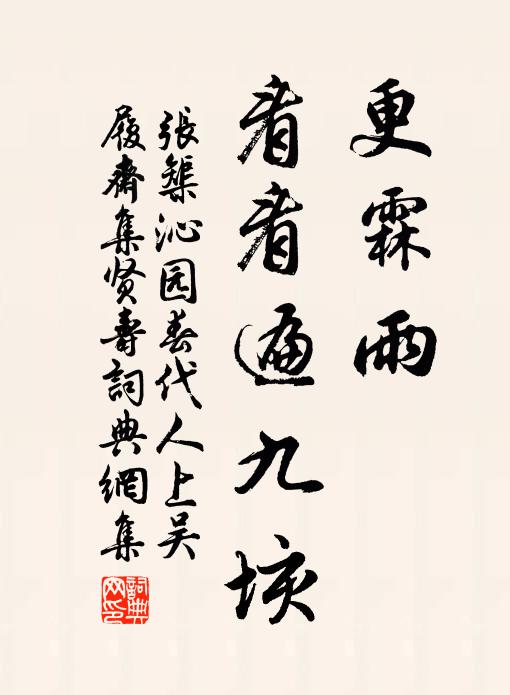 更霖雨
看看遍九垓
張榘沁园春代人上吴
履齋集贤壽詞典網集
詞典网印